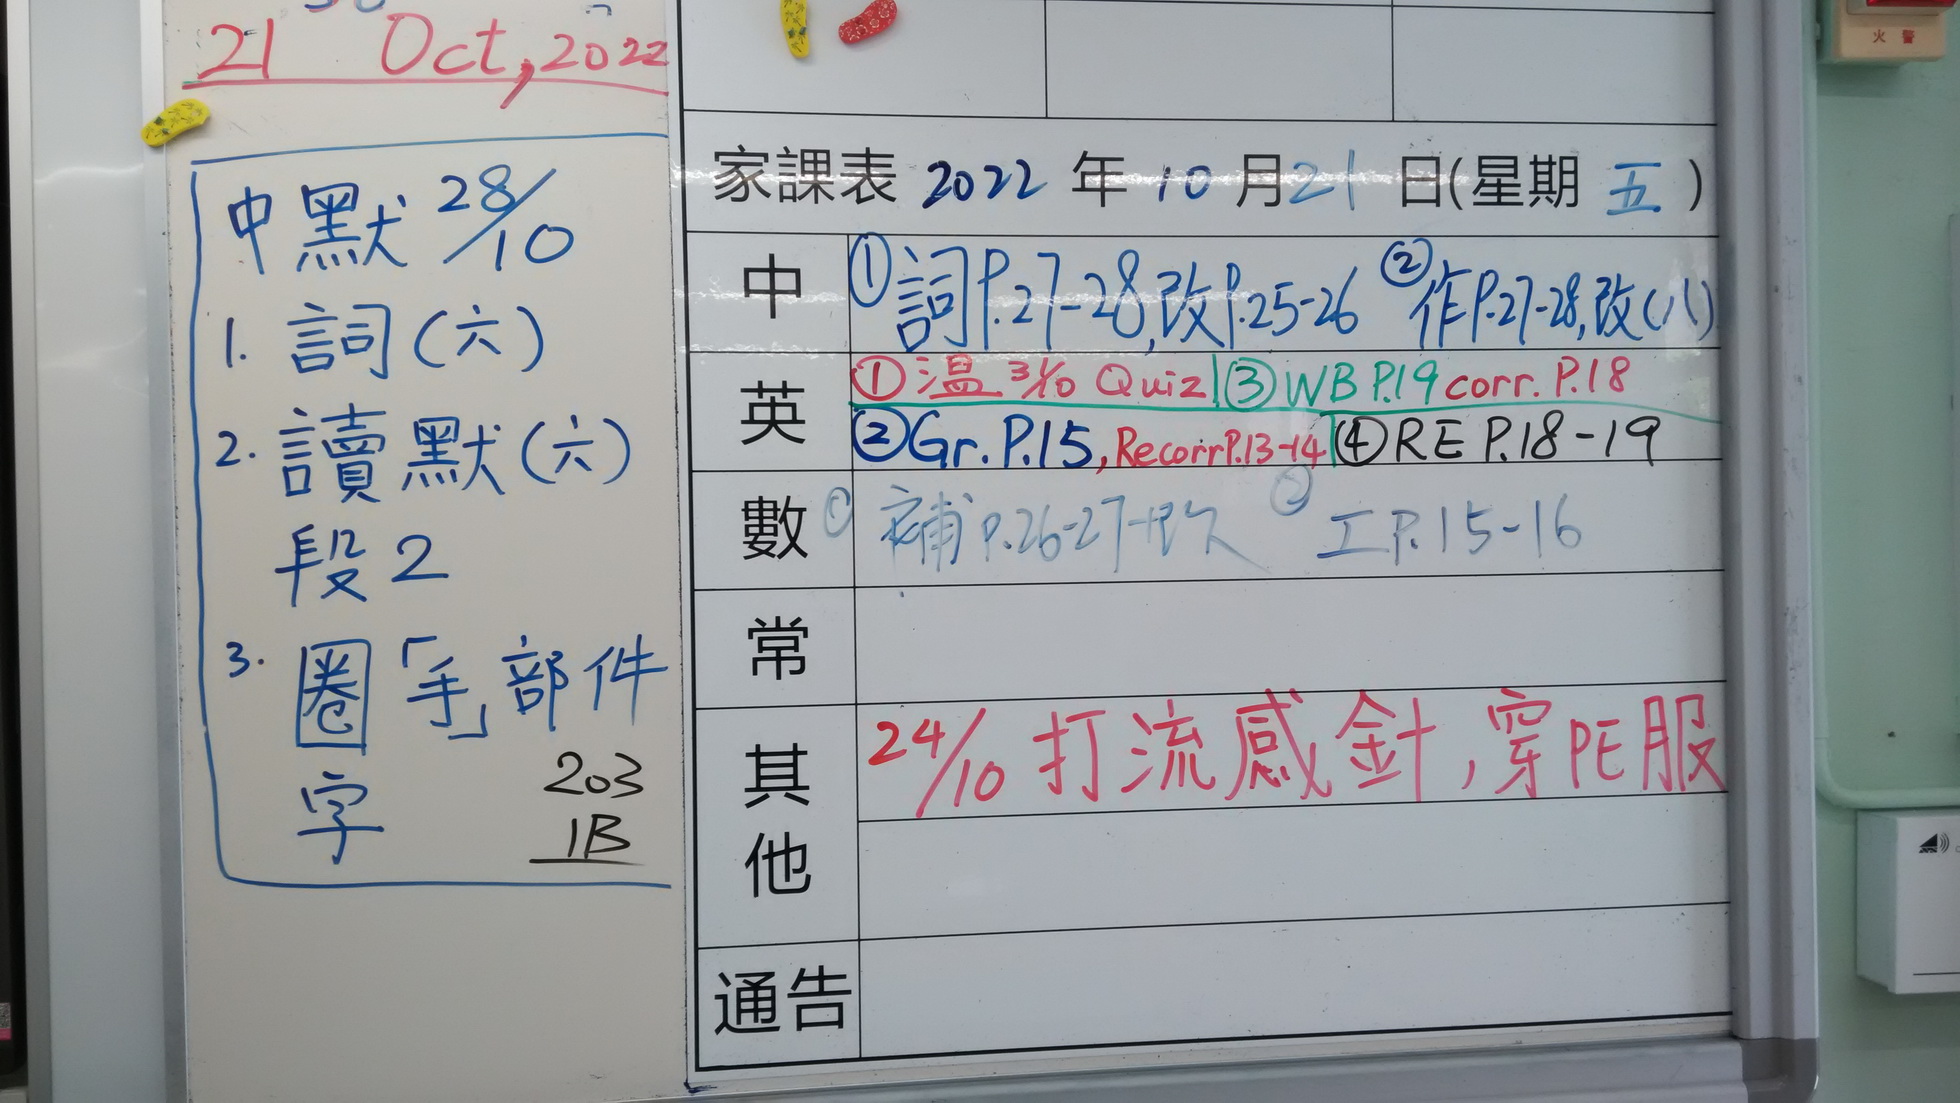 21 Oct, 2022
中默 28/10
1. 詞(六)
2. 讀默(六)
段2
3. 圈「手」部件
字
203
1B
家課表 2022 年 10 月 21 日(星期 五)
中 ① 詞P.27-28,改P.25-26 ② 作P.27-28,改(八)
英 ① 温 3/10 Quiz ③ WB P.19 corr. P.18
② Gr. P.15, Recorr P.13-14 ④ RE P.18-19
數 ① 補 P.26-27+改 ② 工P.15-16
常
其他 24/10 打流感針,穿PE服
通告
火警